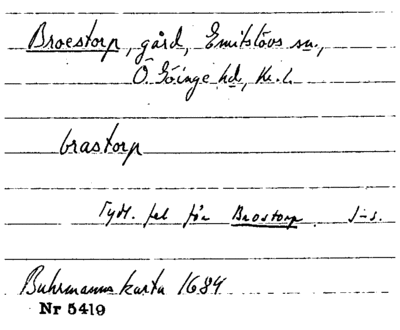 Broestorp, gård, Emitslövs sn.,
Ö. Göinge hd, Kr. l.
brastorp
Tydl. fel för Brostorp. J-s.
Buhrmanns karta 1684
Nr 5419